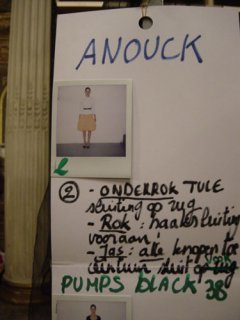 ANOUCK
2
② - ONDERROK TULE
sluiting op rug
- Rok : haaksluiting
vooraan!
- Jas : alle knopen toe
ceintuur sluit op rug
PUMPS BLACK 38